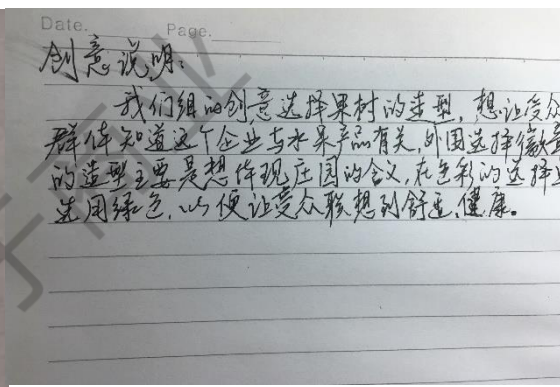 Date. Page.
创意说明:
我们组的创意选择果树的造型,想让受众
群体知道这个企业与水果产品有关,外围选择徽章
的造型主要是想体现庄园的含义,在色彩的选择上
选用绿色,以便让受众联想到舒适、健康。